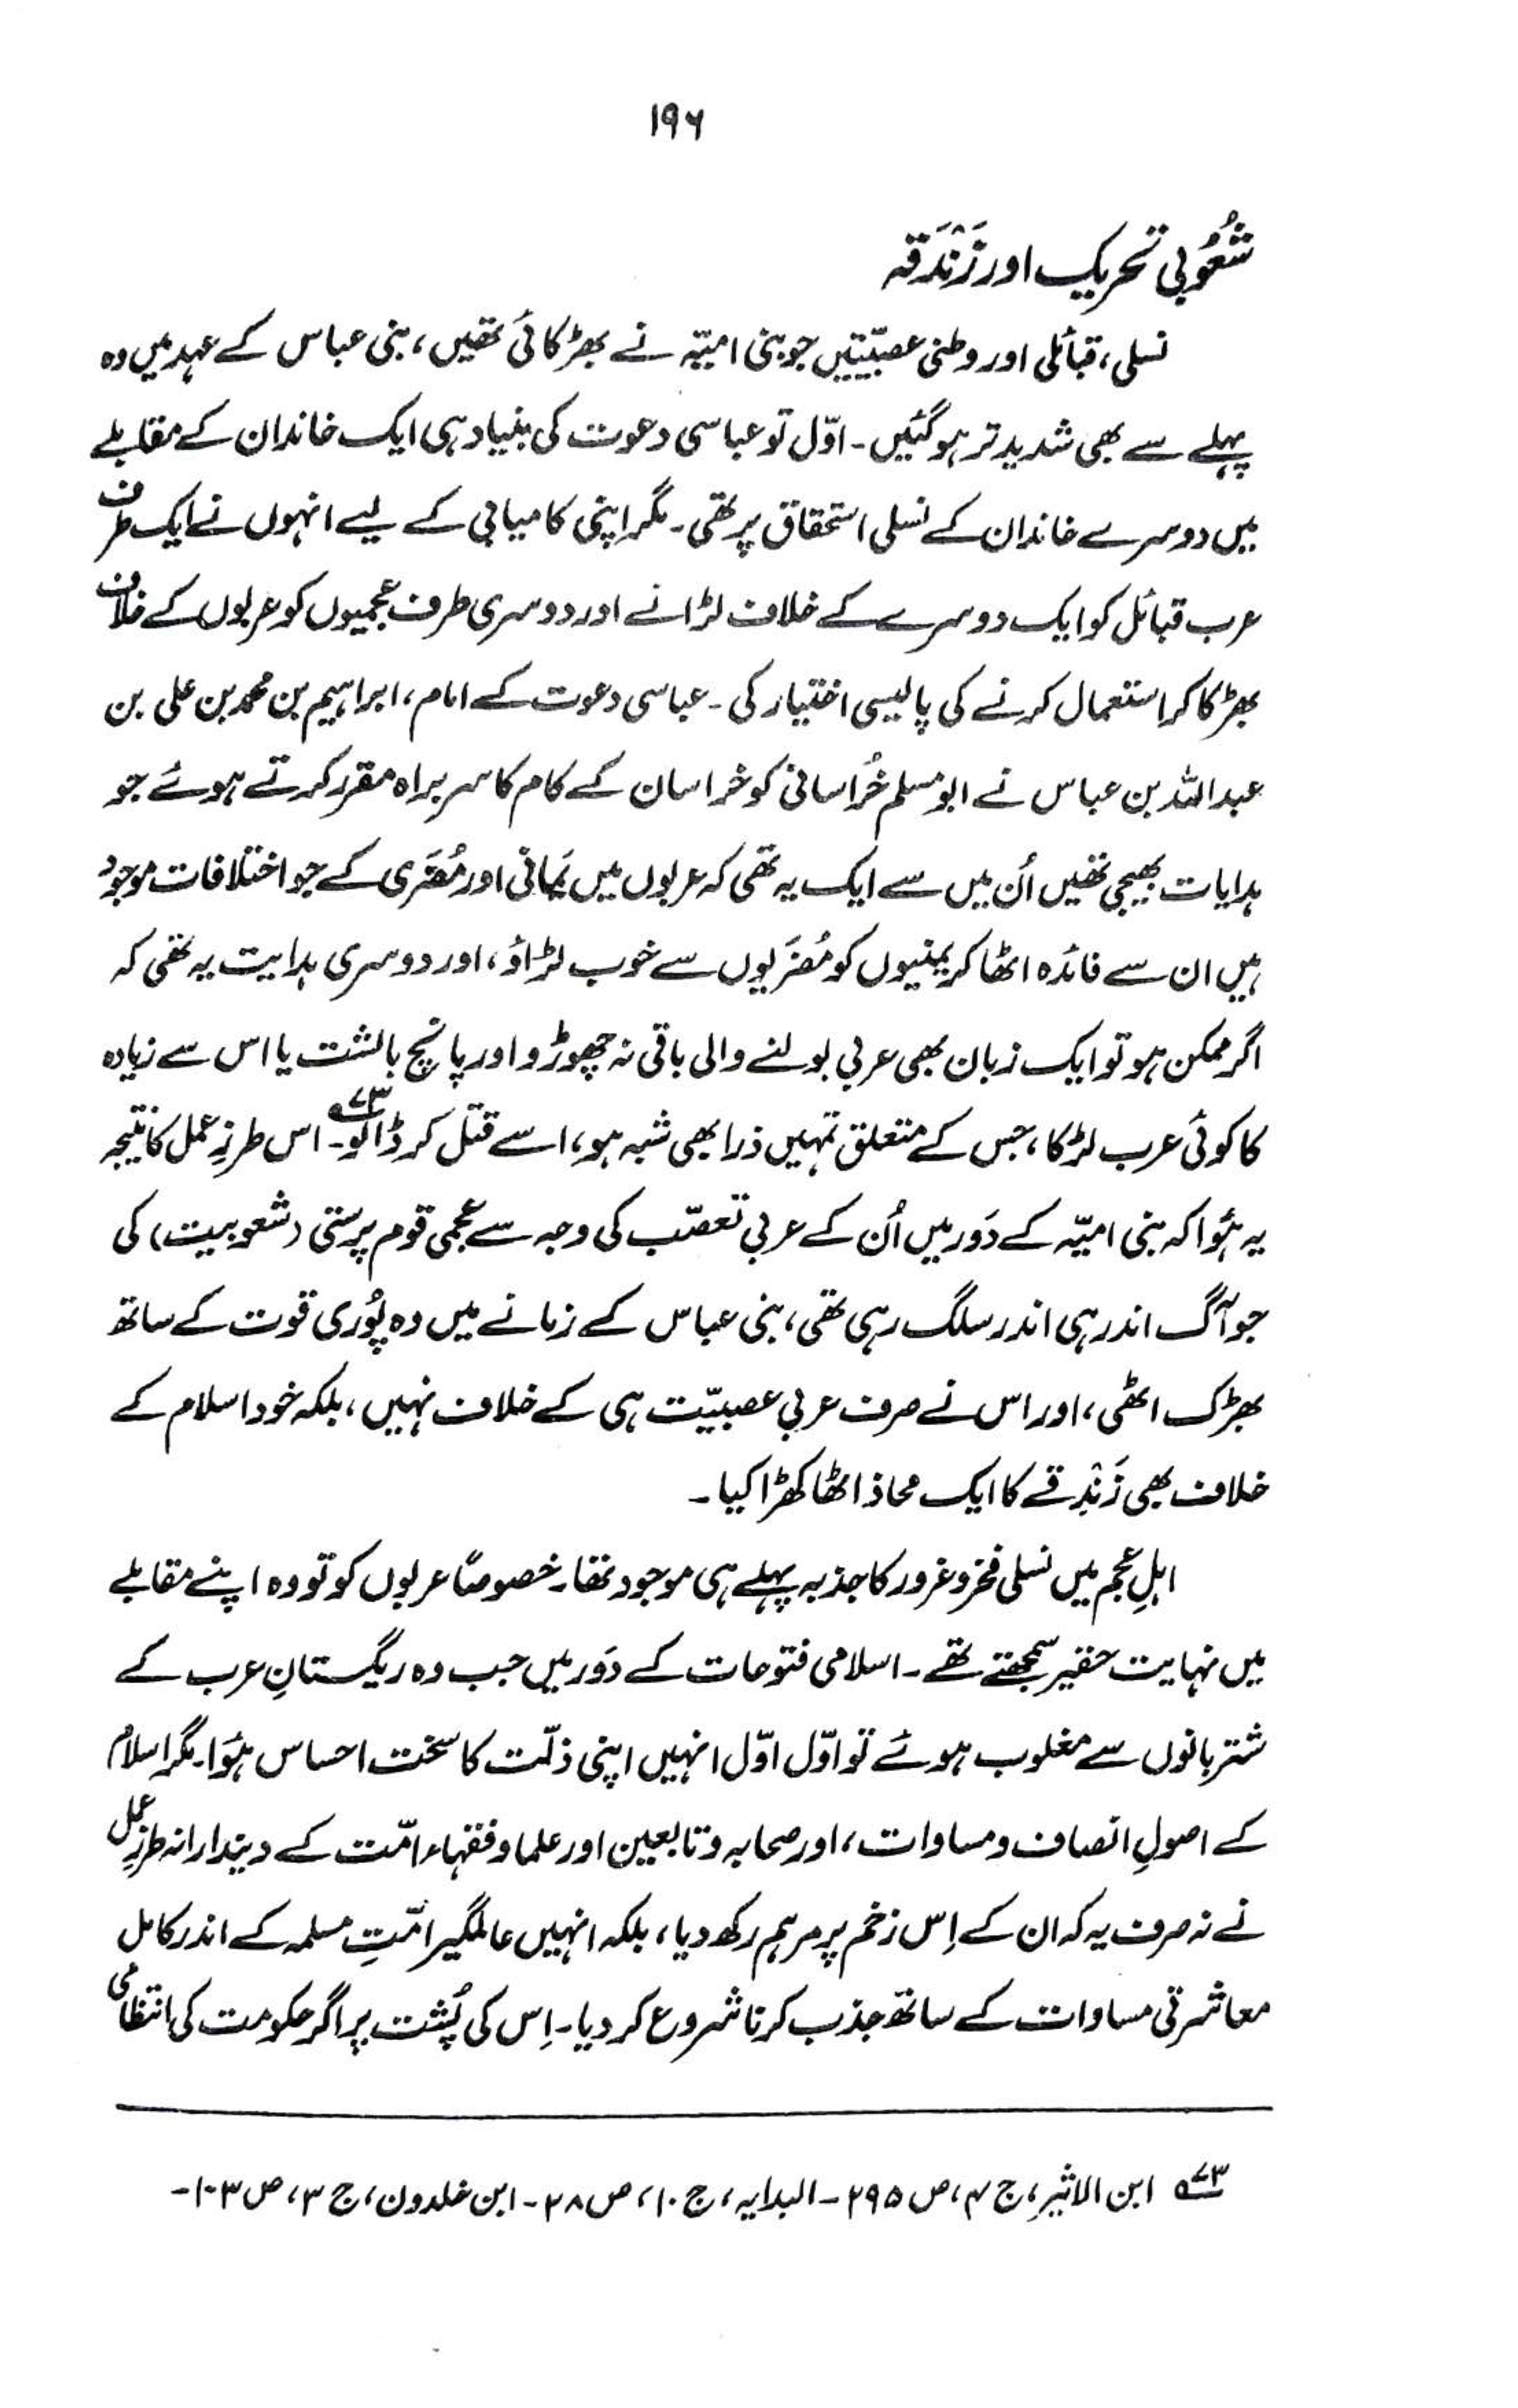 ۱۹۶
شُعُوبی تحریک اور زَنْدَقہ
نسلی، قبائلی اور وطنی عصبیّتیں جو بنی امیّہ نے بھڑکائی تھیں، بنی عباس کے عہد میں وہ
پہلے سے بھی شدید تر ہو گئیں۔ اوّل تو عباسی دعوت کی بنیاد ہی ایک خاندان کے مقابلے
میں دوسرے خاندان کے نسلی استحقاق پر تھی۔ مگر اپنی کامیابی کے لیے انہوں نے ایک طرف
عرب قبائل کو ایک دوسرے کے خلاف لڑانے اور دوسری طرف عجمیوں کو عربوں کے خلاف
بھڑکا کر استعمال کرنے کی پالیسی اختیار کی۔ عباسی دعوت کے امام، ابراہیم بن محمد بن علی بن
عبداللہ بن عباس نے ابو مسلم خُراسانی کو خراسان کے کام کا سربراہ مقرر کرتے ہوئے جو
ہدایات بھیجی تھیں اُن میں سے ایک یہ تھی کہ عربوں میں یَمانی اور مُضَری کے جو اختلافات موجود
ہیں ان سے فائدہ اٹھا کر یمنیوں کو مُضَریوں سے خوب لڑاؤ، اور دوسری ہدایت یہ تھی کہ
اگر ممکن ہو تو ایک زبان بھی عربی بولنے والی باقی نہ چھوڑو اور پانچ بالشت یا اس سے زیادہ
کا کوئی عرب لڑکا، جس کے متعلق تمہیں ذرا بھی شبہ ہو، اسے قتل کر ڈالو۔۷۳ اس طرزِ عمل کا نتیجہ
یہ ہُوا کہ بنی امیّہ کے دَور میں اُن کے عربی تعصّب کی وجہ سے عجمی قوم پرستی (شعوبیت) کی
جو آگ اندر ہی اندر سلگ رہی تھی، بنی عباس کے زمانے میں وہ پُوری قوت کے ساتھ
بھڑک اٹھی، اور اس نے صرف عربی عصبیّت ہی کے خلاف نہیں، بلکہ خود اسلام کے
خلاف بھی زَنْدقے کا ایک محاذ اٹھا کھڑا کیا۔
اہلِ عجم میں نسلی فخر و غرور کا جذبہ پہلے ہی موجود تھا۔ خصوصًا عربوں کو تو وہ اپنے مقابلے
میں نہایت حقیر سمجھتے تھے۔ اسلامی فتوحات کے دَور میں جب وہ ریگستانِ عرب کے
شتربانوں سے مغلوب ہوئے تو اوّل اوّل انہیں اپنی ذلّت کا سخت احساس ہُوا۔ مگر اسلام
کے اصولِ انصاف و مساوات، اور صحابہ و تابعین اور علما و فقہاء امّت کے دیندارانہ طرزِ عمل
نے نہ صرف یہ کہ ان کے اِس زخم پر مرہم رکھ دیا، بلکہ انہیں عالمگیر امّتِ مسلمہ کے اندر کامل
معاشرتی مساوات کے ساتھ جذب کرنا شروع کر دیا۔ اِس کی پُشت پر اگر حکومت کی انتظامی
۷۳ ابن الاثیر، ج ۴، ص ۲۹۵۔ البدایہ، ج ۱۰، ص ۲۸۔ ابن خلدون، ج ۳، ص ۱۰۳۔